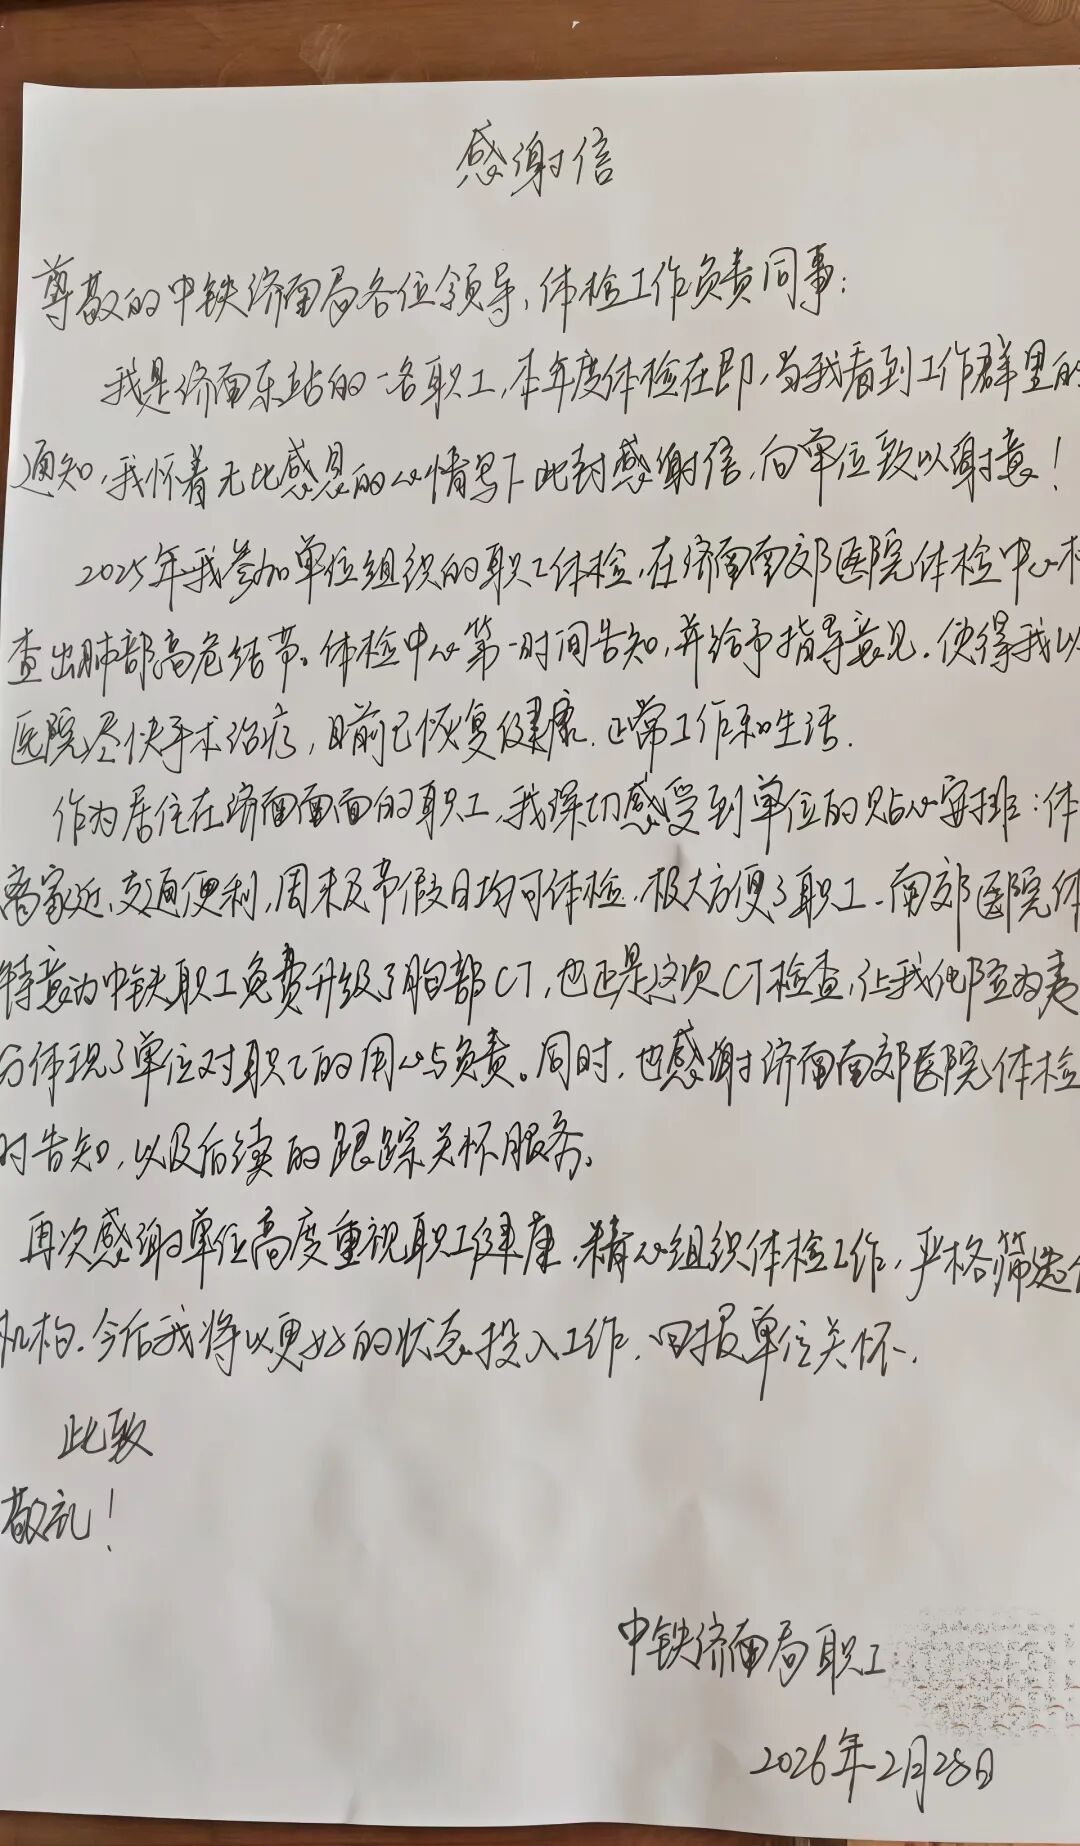 感谢信
尊敬的中铁济南局各位领导、体检工作负责同事:
我是济南东站的一名职工,本年度体检在即,当我看到工作群里的
通知,我怀着无比感恩的心情写下此封感谢信,向单位致以谢意!
2025年我参加单位组织的职工体检,在济南南郊医院体检中心检
查出肺部高危结节。体检中心第一时间告知,并给予指导意见,使得我以
医院尽快手术治疗,目前已恢复健康,正常工作和生活.
作为居住在济南南面的职工,我深切感受到单位的贴心安排:体
离家近,交通便利,周末及节假日均可体检,极大方便了职工.南郊医院体
特意为中铁职工免费升级了胸部CT,也正是这次CT检查,让我化险为夷
分体现了单位对职工的用心与负责。同时,也感谢济南南郊医院体检
时告知,以及后续的跟踪关怀服务。
再次感谢单位高度重视职工健康,精心组织体检工作,严格筛选体
机构.今后我将以更好的状态投入工作,回报单位关怀.
此致
敬礼!
中铁济南局职工
2026年2月28日